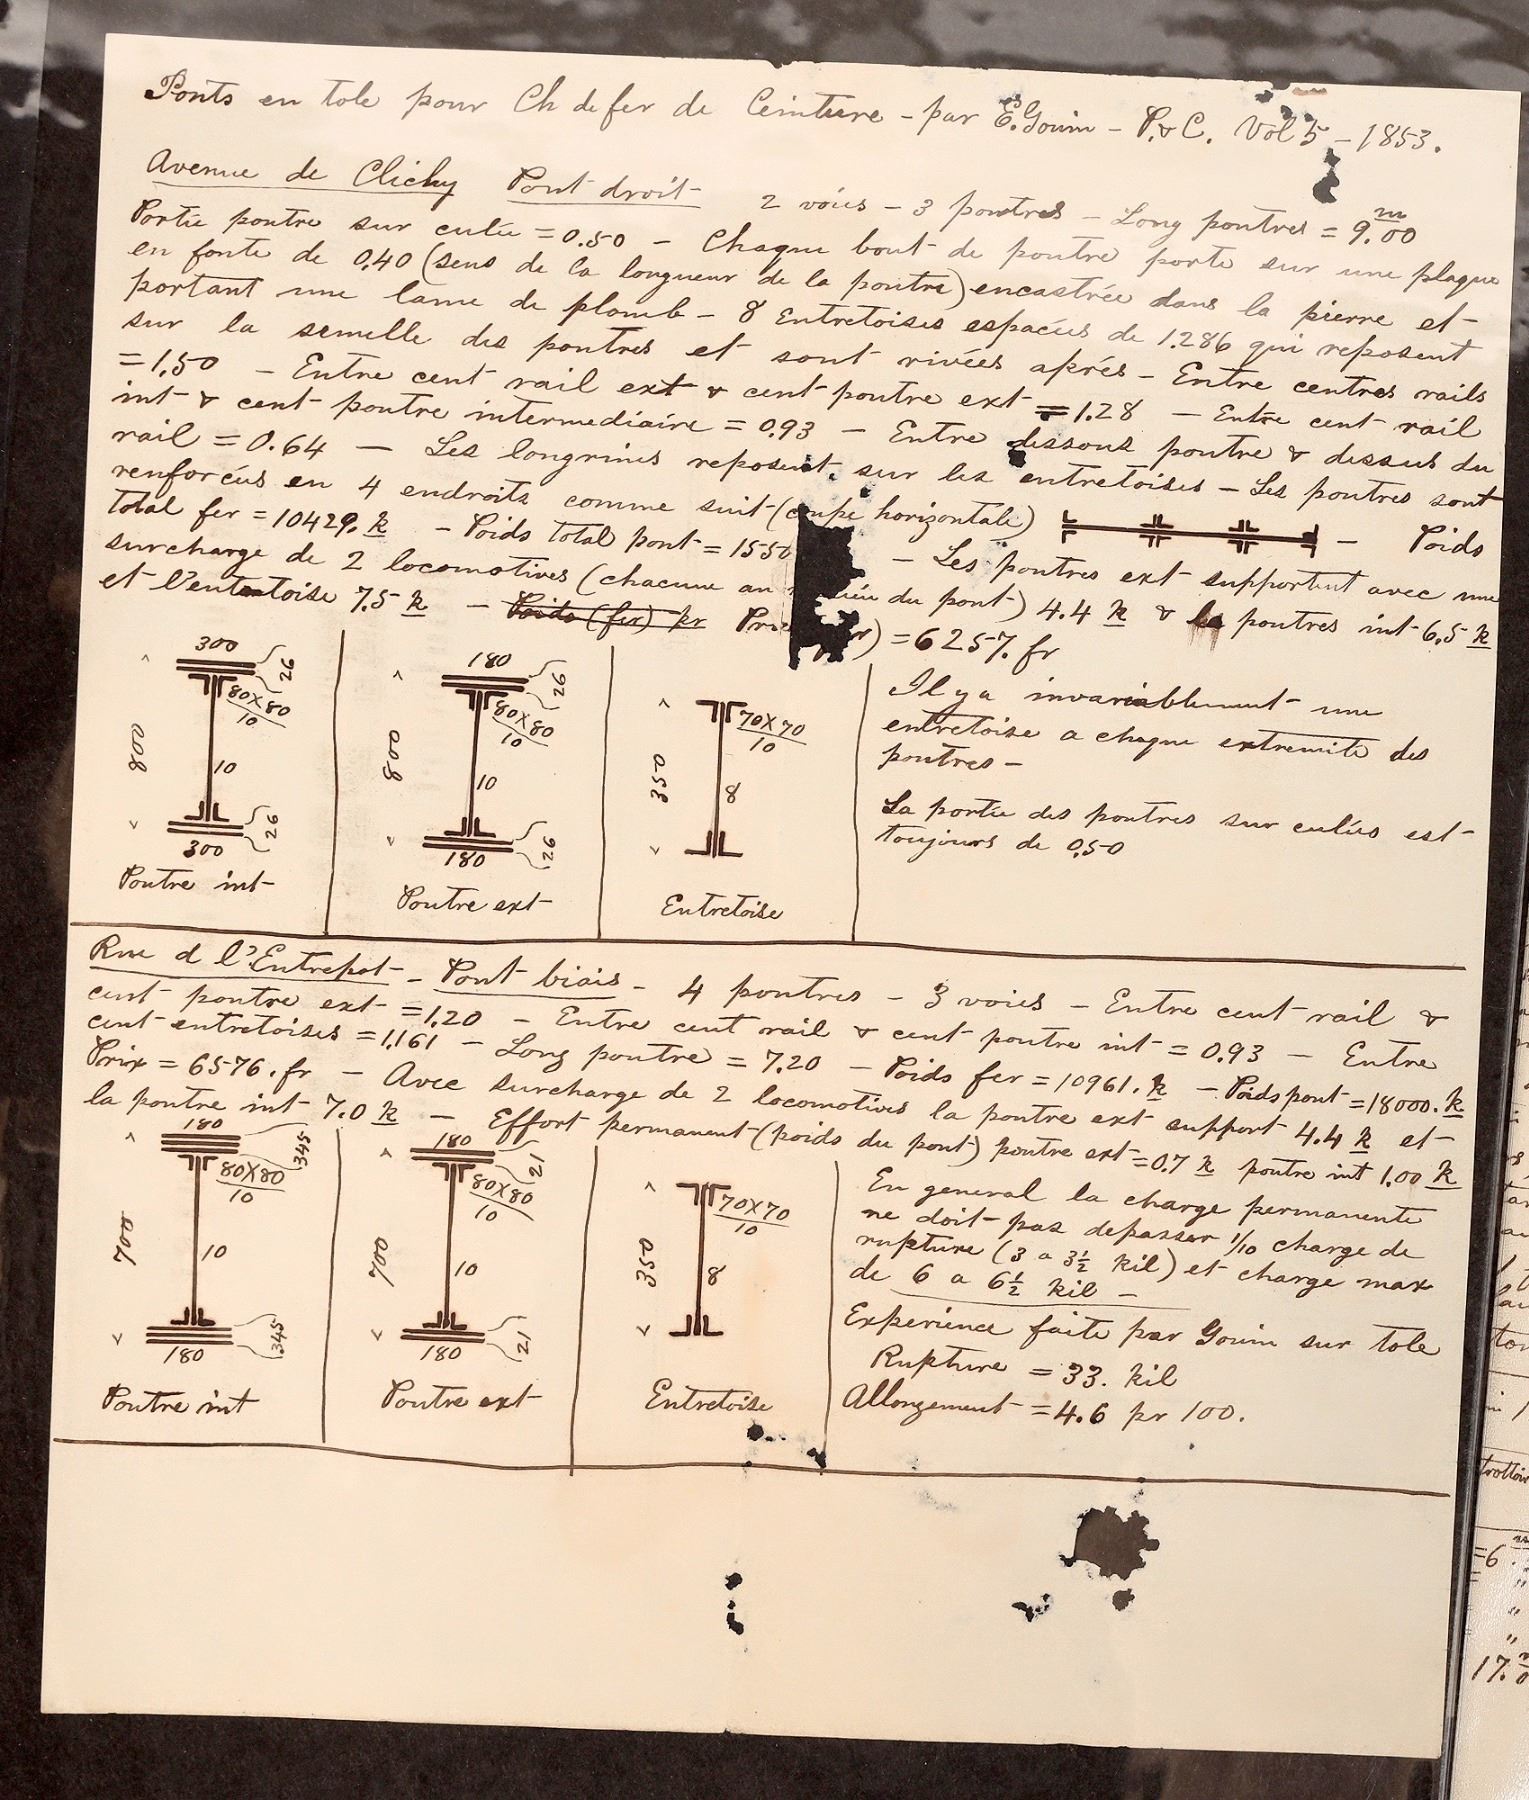 Ponts en tole pour Ch de fer de Ceinture - par E. Gouin - P. & C. Vol 5 - 1853.
Avenue de Clichy Pont droit 2 voies - 3 poutres - Long poutres = 9.00 m
Portée poutre sur culée = 0.50 - Chaque bout de poutre porte sur une plaque
en fonte de 0.40 (sens de la longueur de la poutre) encastrée dans la pierre et
portant une lame de plomb - 8 Entretoises espacées de 1.286 qui reposent
sur la semelle des poutres et sont rivées aprés - Entre centres rails
= 1.50 - Entre cent rail ext & cent poutre ext = 1.28 - Entre cent rail
int & cent poutre intermediaire = 0.93 - Entre dessous poutre & dessus du
rail = 0.64 - Les longrines reposent sur les entretoises - Les poutres sont
renforcées en 4 endroits comme suit (coupe horizontale) - Poids
total fer = 10429. k - Poids total pont = 155 - Les poutres ext supportent avec une
surcharge de 2 locomotives (chacune au milieu du pont) 4.4 k & les poutres int 6.5 k
et l'entretoise 7.5 k - Poids (fer) pr = 6257. fr
300
26
80X80
10
800
10
26
300
Poutre int
180
26
80X80
10
800
10
26
180
Poutre ext
70X70
10
350
8
Entretoise
Il y a invariablement une
entretoise a chaque extremite des
poutres -
La portée des poutres sur culées est
toujours de 0.50
Rue d l'Entrepot - Pont biais - 4 poutres - 3 voies - Entre cent rail &
cent poutre ext = 1.20 - Entre cent rail & cent poutre int = 0.93 - Entre
cent entretoises = 1.161 - Long poutre = 7.20 - Poids fer = 10961. k - Poids pont = 18000. k
Prix = 6576. fr - Avec surcharge de 2 locomotives la poutre ext support 4.4 k et
la poutre int 7.0 k - Effort permanent (poids du pont) poutre ext = 0.7 k poutre int 1.00 k
180
345
80X80
10
700
10
345
180
Poutre int
180
21
80X80
10
700
10
21
180
Poutre ext
70X70
10
350
8
Entretoise
En general la charge permanente
ne doit pas depasser 1/10 charge de
rupture (3 a 3½ kil) et charge max
de 6 a 6½ kil -
Experience faite par Gouin sur tole
Rupture = 33. kil
Allongement = 4.6 pr 100.